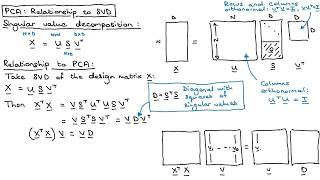 PCA: Relationship to SVD
Singular value decomposition:
N×D N×D D×D
X = U S V^T
N×N
Relationship to PCA:
Take SVD of the design matrix X:
X = U S V^T
Then X^T X = V S^T U^T U S V^T
= V S^T S V^T = V D V^T
(X^T X) V = V D
D = S^T S
Diagonal with squares of singular values
Rows and columns
orthonormal: V^T V = V V^T = I
D
N
X
=
N
U
D
S
D
V^T
Columns
orthonormal:
U^T U = I
X^T X
V
=
V
D